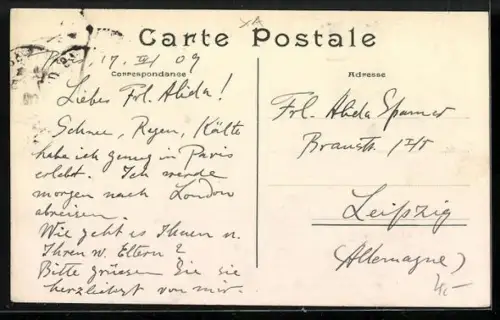 Carte Postale
Correspondance
Adresse
Paris, 17. III 09
Liebes Frl. Alida!
Schnee, Regen, Kälte
habe ich genug in Paris
erlebt. Ich werde
morgen nach London
abreisen.
Wie geht es Ihnen u.
Ihren w. Eltern?
Bitte grüssen Sie sie
herzlichst von mir.
Frl. Alida
Leipzig
(Allemagne)